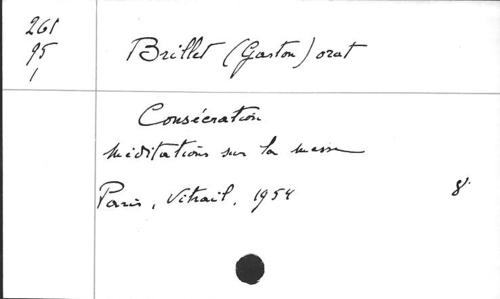 261
95
1
Brillet (Gaston) orat
Consécration
méditations sur la messe
Paris, Vitrail, 1954
8°